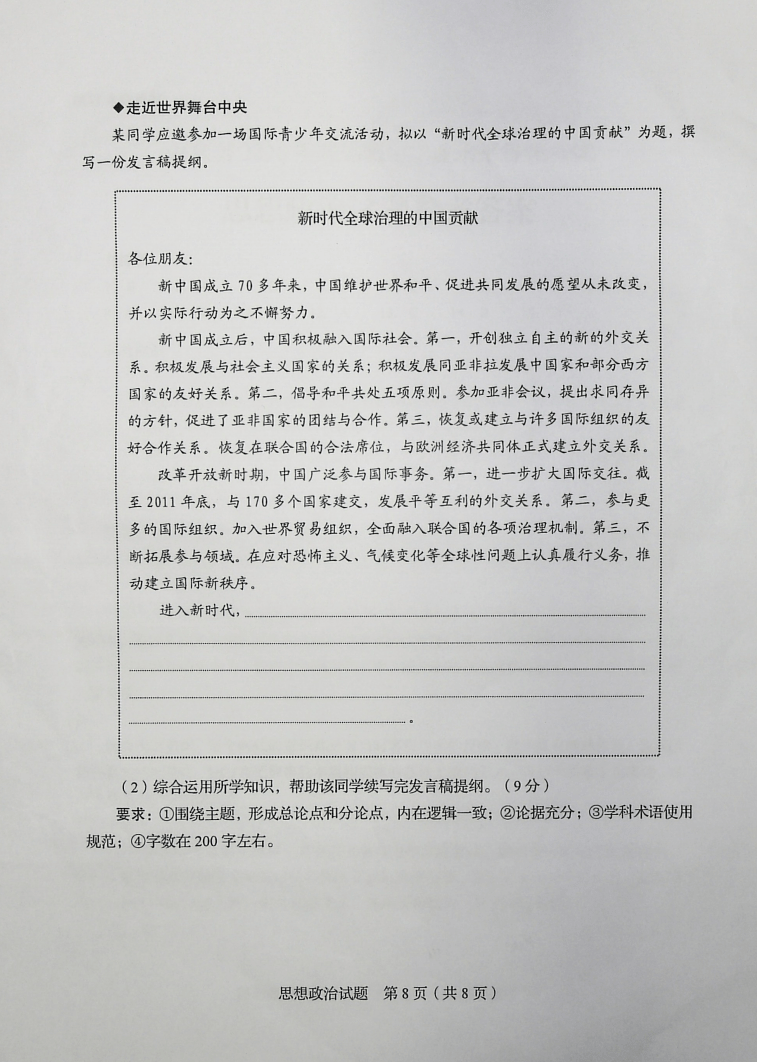 ◆走近世界舞台中央
某同学应邀参加一场国际青少年交流活动，拟以“新时代全球治理的中国贡献”为题，撰
写一份发言稿提纲。
新时代全球治理的中国贡献
各位朋友：
新中国成立 70 多年来，中国维护世界和平、促进共同发展的愿望从未改变，
并以实际行动为之不懈努力。
新中国成立后，中国积极融入国际社会。第一，开创独立自主的新的外交关
系。积极发展与社会主义国家的关系；积极发展同亚非拉发展中国家和部分西方
国家的友好关系。第二，倡导和平共处五项原则。参加亚非会议，提出求同存异
的方针，促进了亚非国家的团结与合作。第三，恢复或建立与许多国际组织的友
好合作关系。恢复在联合国的合法席位，与欧洲经济共同体正式建立外交关系。
改革开放新时期，中国广泛参与国际事务。第一，进一步扩大国际交往。截
至 2011 年底，与 170 多个国家建交，发展平等互利的外交关系。第二，参与更
多的国际组织。加入世界贸易组织，全面融入联合国的各项治理机制。第三，不
断拓展参与领域。在应对恐怖主义、气候变化等全球性问题上认真履行义务，推
动建立国际新秩序。
进入新时代，
。
（2）综合运用所学知识，帮助该同学续写完发言稿提纲。（9 分）
要求：①围绕主题，形成总论点和分论点，内在逻辑一致；②论据充分；③学科术语使用
规范；④字数在 200 字左右。
思想政治试题 第 8 页（共 8 页）